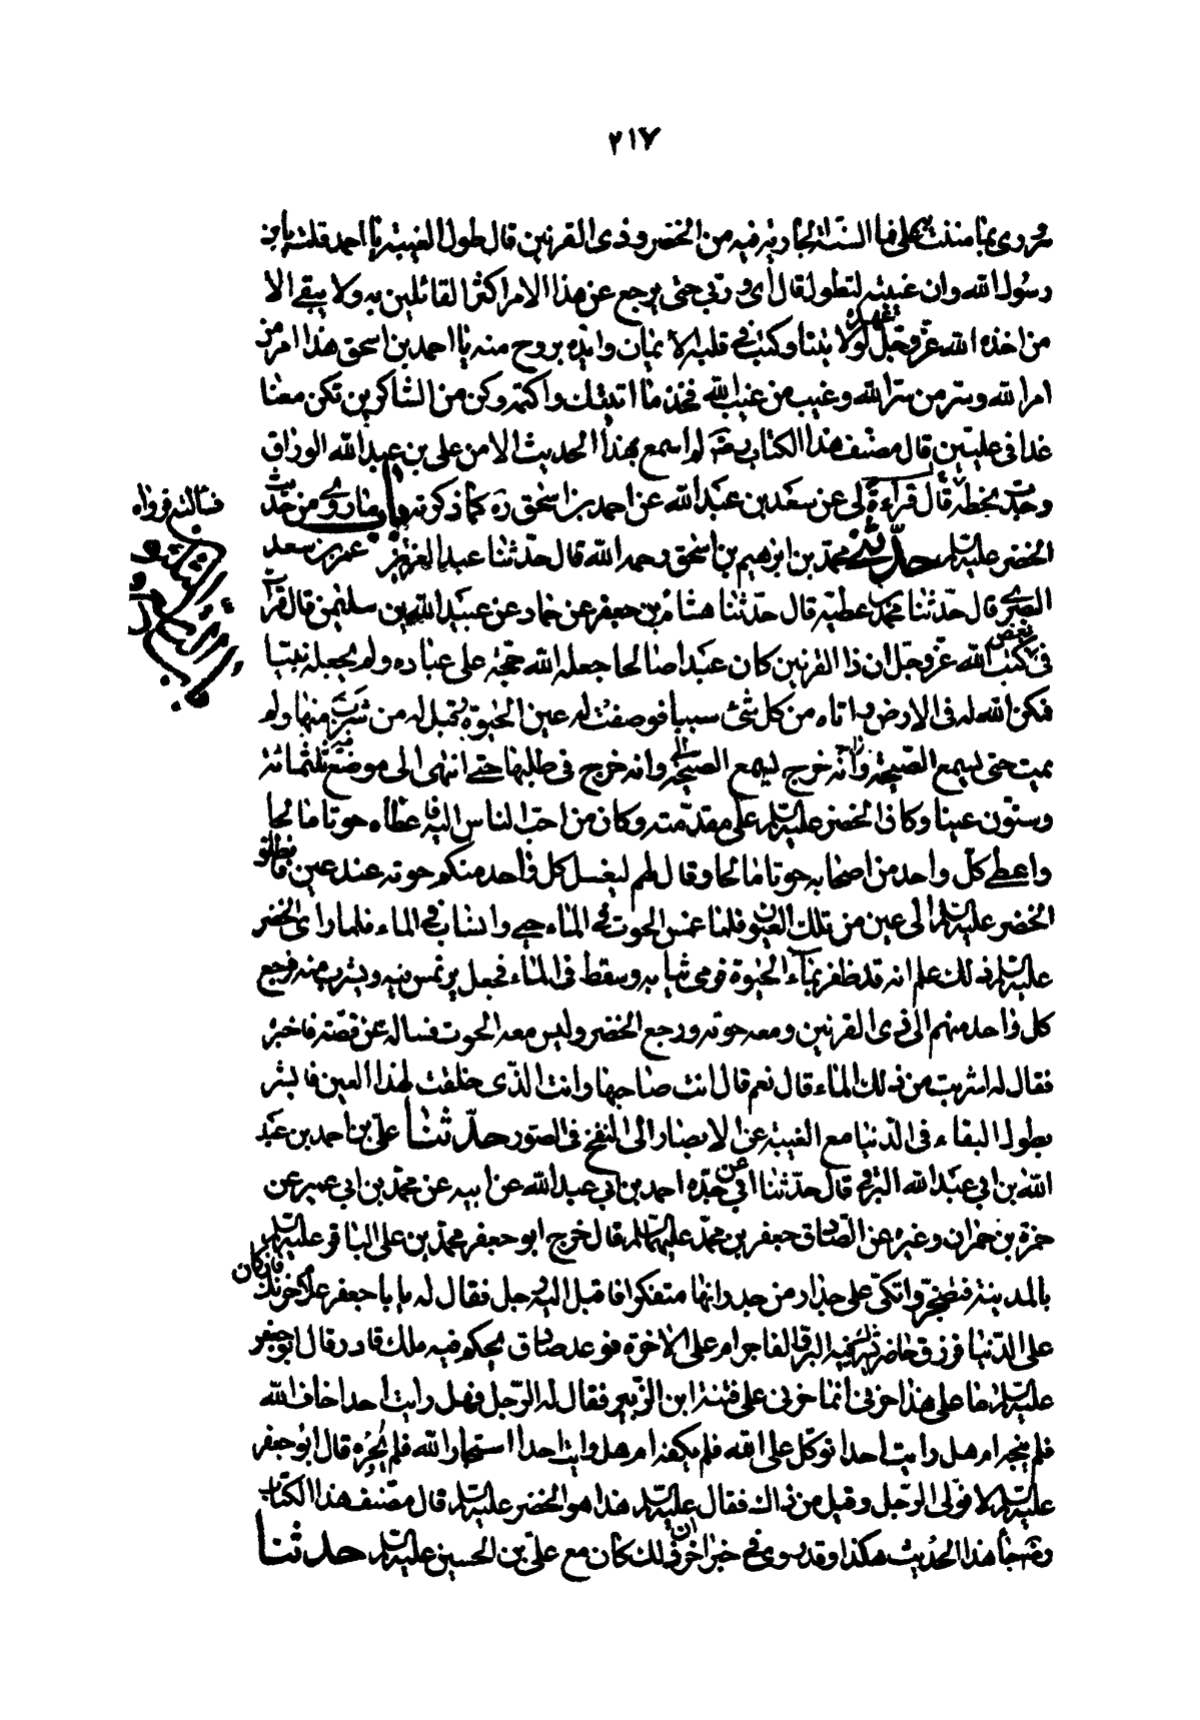 ٢١٧
سروري بما مننت به علي فما السنة الجارية فيه من الخضر وذي القرنين قال طول الغيبة يا احمد قلت يا بن
رسول الله وان غيبته لتطول قال اي وربي حتى يرجع عن هذا الامر اكثر القائلين به ولا يبقى الا
من اخذ الله عز وجل عهده لولايتنا وكتب في قلبه الايمان وايده بروح منه يا احمد بن اسحق هذا امر من
امر الله وسر من سر الله وغيب من غيب الله فخذ ما اتيتك واكتمه وكن من الشاكرين تكن معنا
غدا في عليين قال مصنف هذا الكتاب رضه لم اسمع بهذا الحديث الا من علي بن عبد الله الوراق
وجدت بخطه فسالته فرواه لي قراءة عن سعد بن عبد الله عن احمد بن اسحق ره كما ذكرته باب ما روي من حديث
الخضر عليه السلم حدثنا محمد بن ابرهيم بن اسحق رحمه الله قال حدثنا عبد العزيز عمر بن سعد
البصري قال حدثنا محمد بن عطيه قال حدثنا هشام بن جعفر عن حماد عن عبد الله بن سليمن قال قرات
في بعض كتب الله عز وجل ان ذا القرنين كان عبدا صالحا جعله الله حجة على عباده ولم يجعله نبيا
فمكن الله له في الارض واتاه من كل شئ سببا فوصفت له عين الحيوة وقيل له من شرب منها لم
يمت حتى يسمع الصيحة وانه خرج في طلبها حتى انتهى الى موضع فيه ثلثمائة
وستون عينا وكان الخضر عليه السلم على مقدمته وكان من احب الناس اليه فاعطاه حوتا مالحا
واعطى كل واحد من اصحابه حوتا مالحا وقال لهم ليغسل كل واحد منكم حوته عند عين فانطلق
الخضر عليه السلم الى عين من تلك العيون فلما غمس الحوت في الماء حيي وانساب في الماء فلما راى الخضر
عليه السلم ذلك علم انه قد ظفر بماء الحيوة فرمى ثيابه وسقط في الماء فجعل يرتمس فيه ويشرب منه فرجع
كل واحد منهم الى ذي القرنين ومعه حوته ورجع الخضر وليس معه الحوت فساله عن قصته فاخبره
فقال له اشربت من ذلك الماء قال نعم قال انت صاحبها وانت الذي خلقت لهذا العين فابشر
بطول البقاء في الدنيا مع الغيبة عن الابصار الى النفخ في الصور حدثنا علي بن احمد بن عبد
الله بن ابي عبد الله البرقي قال حدثنا ابي عن جده احمد بن ابي عبد الله عن ابيه عن محمد بن ابي عمير عن
حمزة بن حمران وغيره عن الصادق جعفر بن محمد عليهما السلم قال خرج ابو جعفر محمد بن علي الباقر عليه السلم
بالمدينة فتضجر واتكى على جدار من جدرانها متفكرا فاقبل اليه رجل فقال له يا با جعفر علام حزنك فان كان
على الدنيا فرزق حاضر يشترك فيه البر والفاجر ام على الاخرة فوعد صادق يحكم فيه ملك قادر قال ابو جعفر
عليه السلم ما على هذا حزني انما حزني على فتنة ابن الزبير فقال له الرجل فهل رايت احدا خاف الله
فلم ينجه ام هل رايت احدا توكل على الله فلم يكفه ام هل رايت احدا استجار الله فلم يجره قال ابو جعفر
عليه السلم لا فولى الرجل وقيل من ذاك فقال عليه السلم هذا هو الخضر عليه السلم قال مصنف هذا الكتاب
جاء هذا الحديث هكذا وقد روي في خبر اخر ان ذلك كان مع علي بن الحسين عليه السلم حدثنا